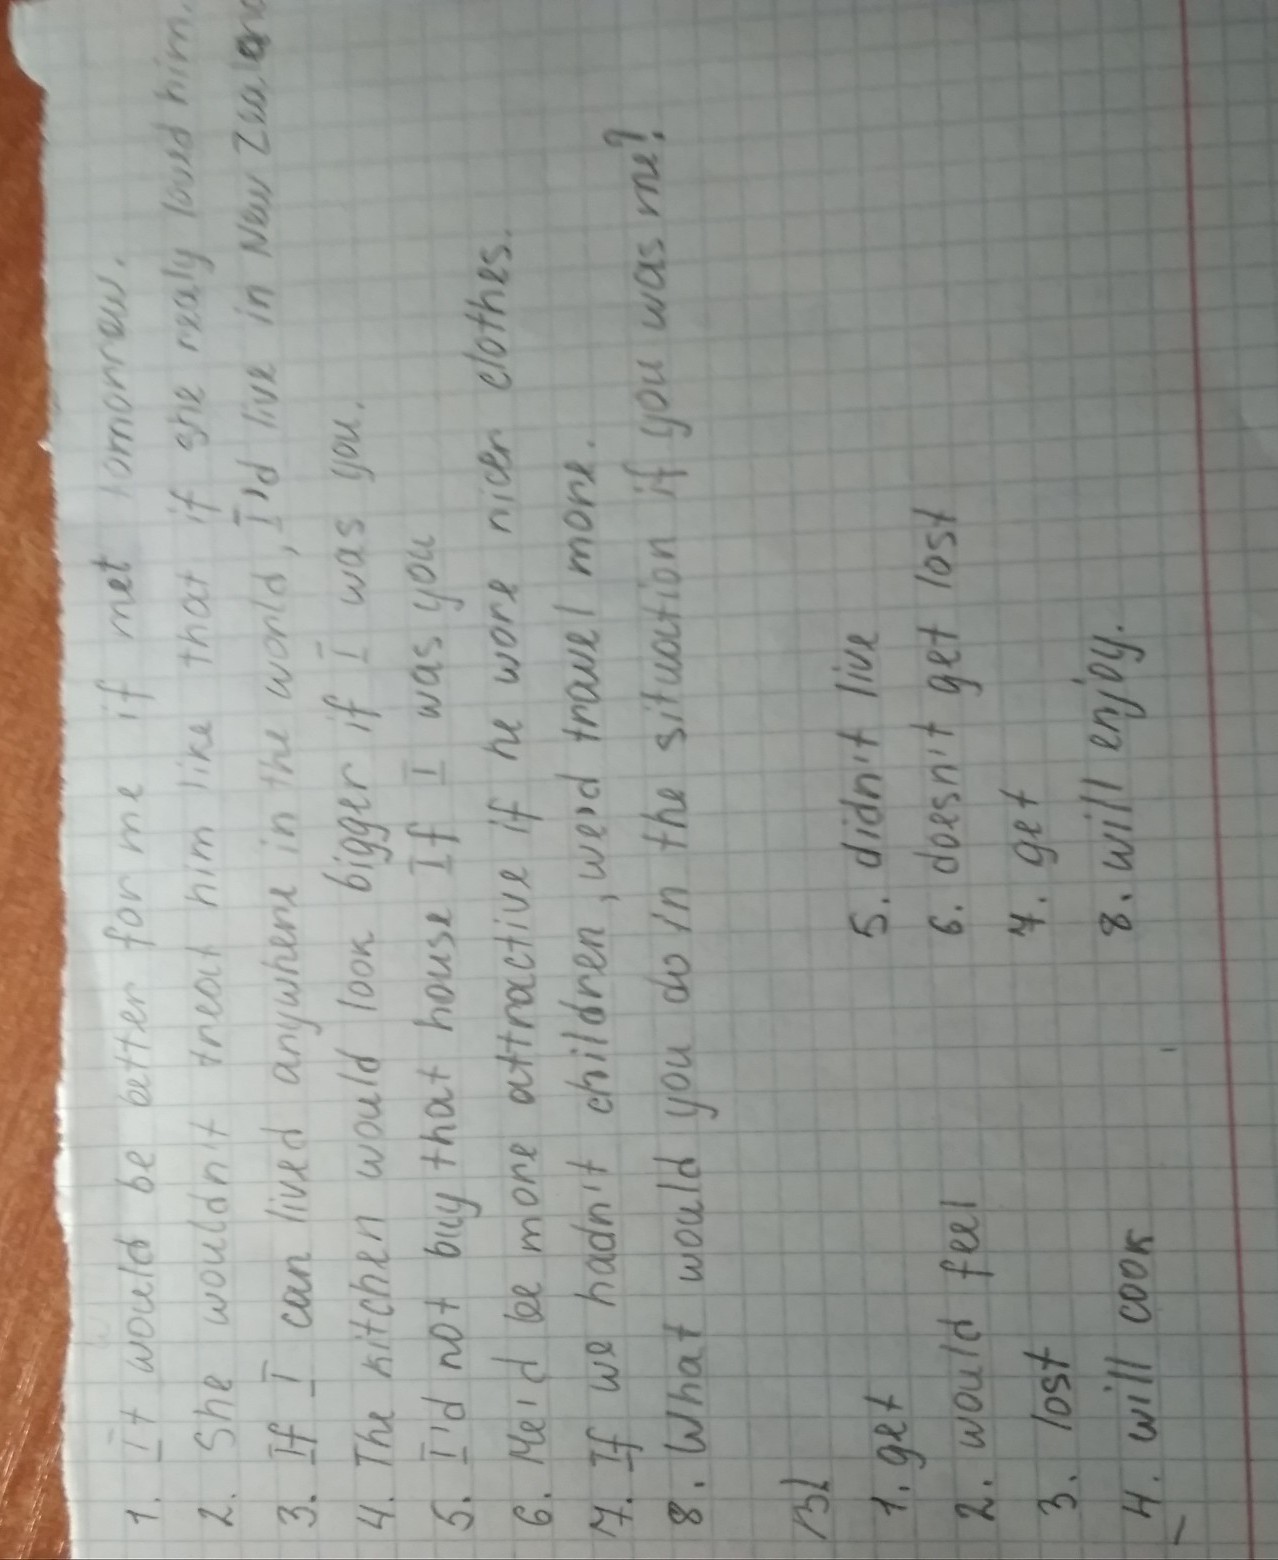 1. It would be better for me if met tomorrow.
2. She wouldn't treat him like that if she realy loved him.
3. If I can lived anywhere in the world, I'd live in New Zealand
4. The kitchen would look bigger if I was you.
5. I'd not buy that house If I was you
6. He'd be more attractive if he wore nicer clothes.
7. If we hadn't children, we'd travel more.
8. What would you do in the situation if you was me?
B)
1. get
2. would feel
3. lost
4. will cook
5. didn't live
6. doesn't get lost
7. get
8. will enjoy.